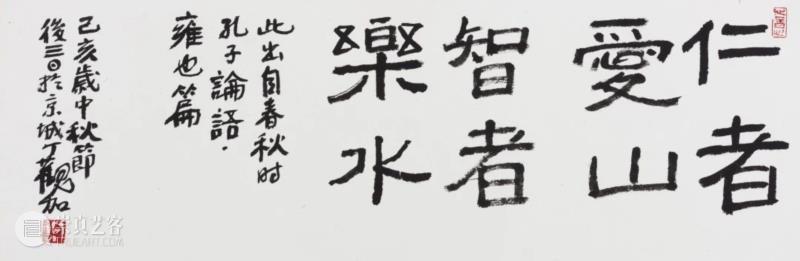 仁者
愛山
智者
樂水
此出自春秋时
孔子論語·
雍也篇
己亥歲中秋節
後三日於京城丁觀加
崇真艺客